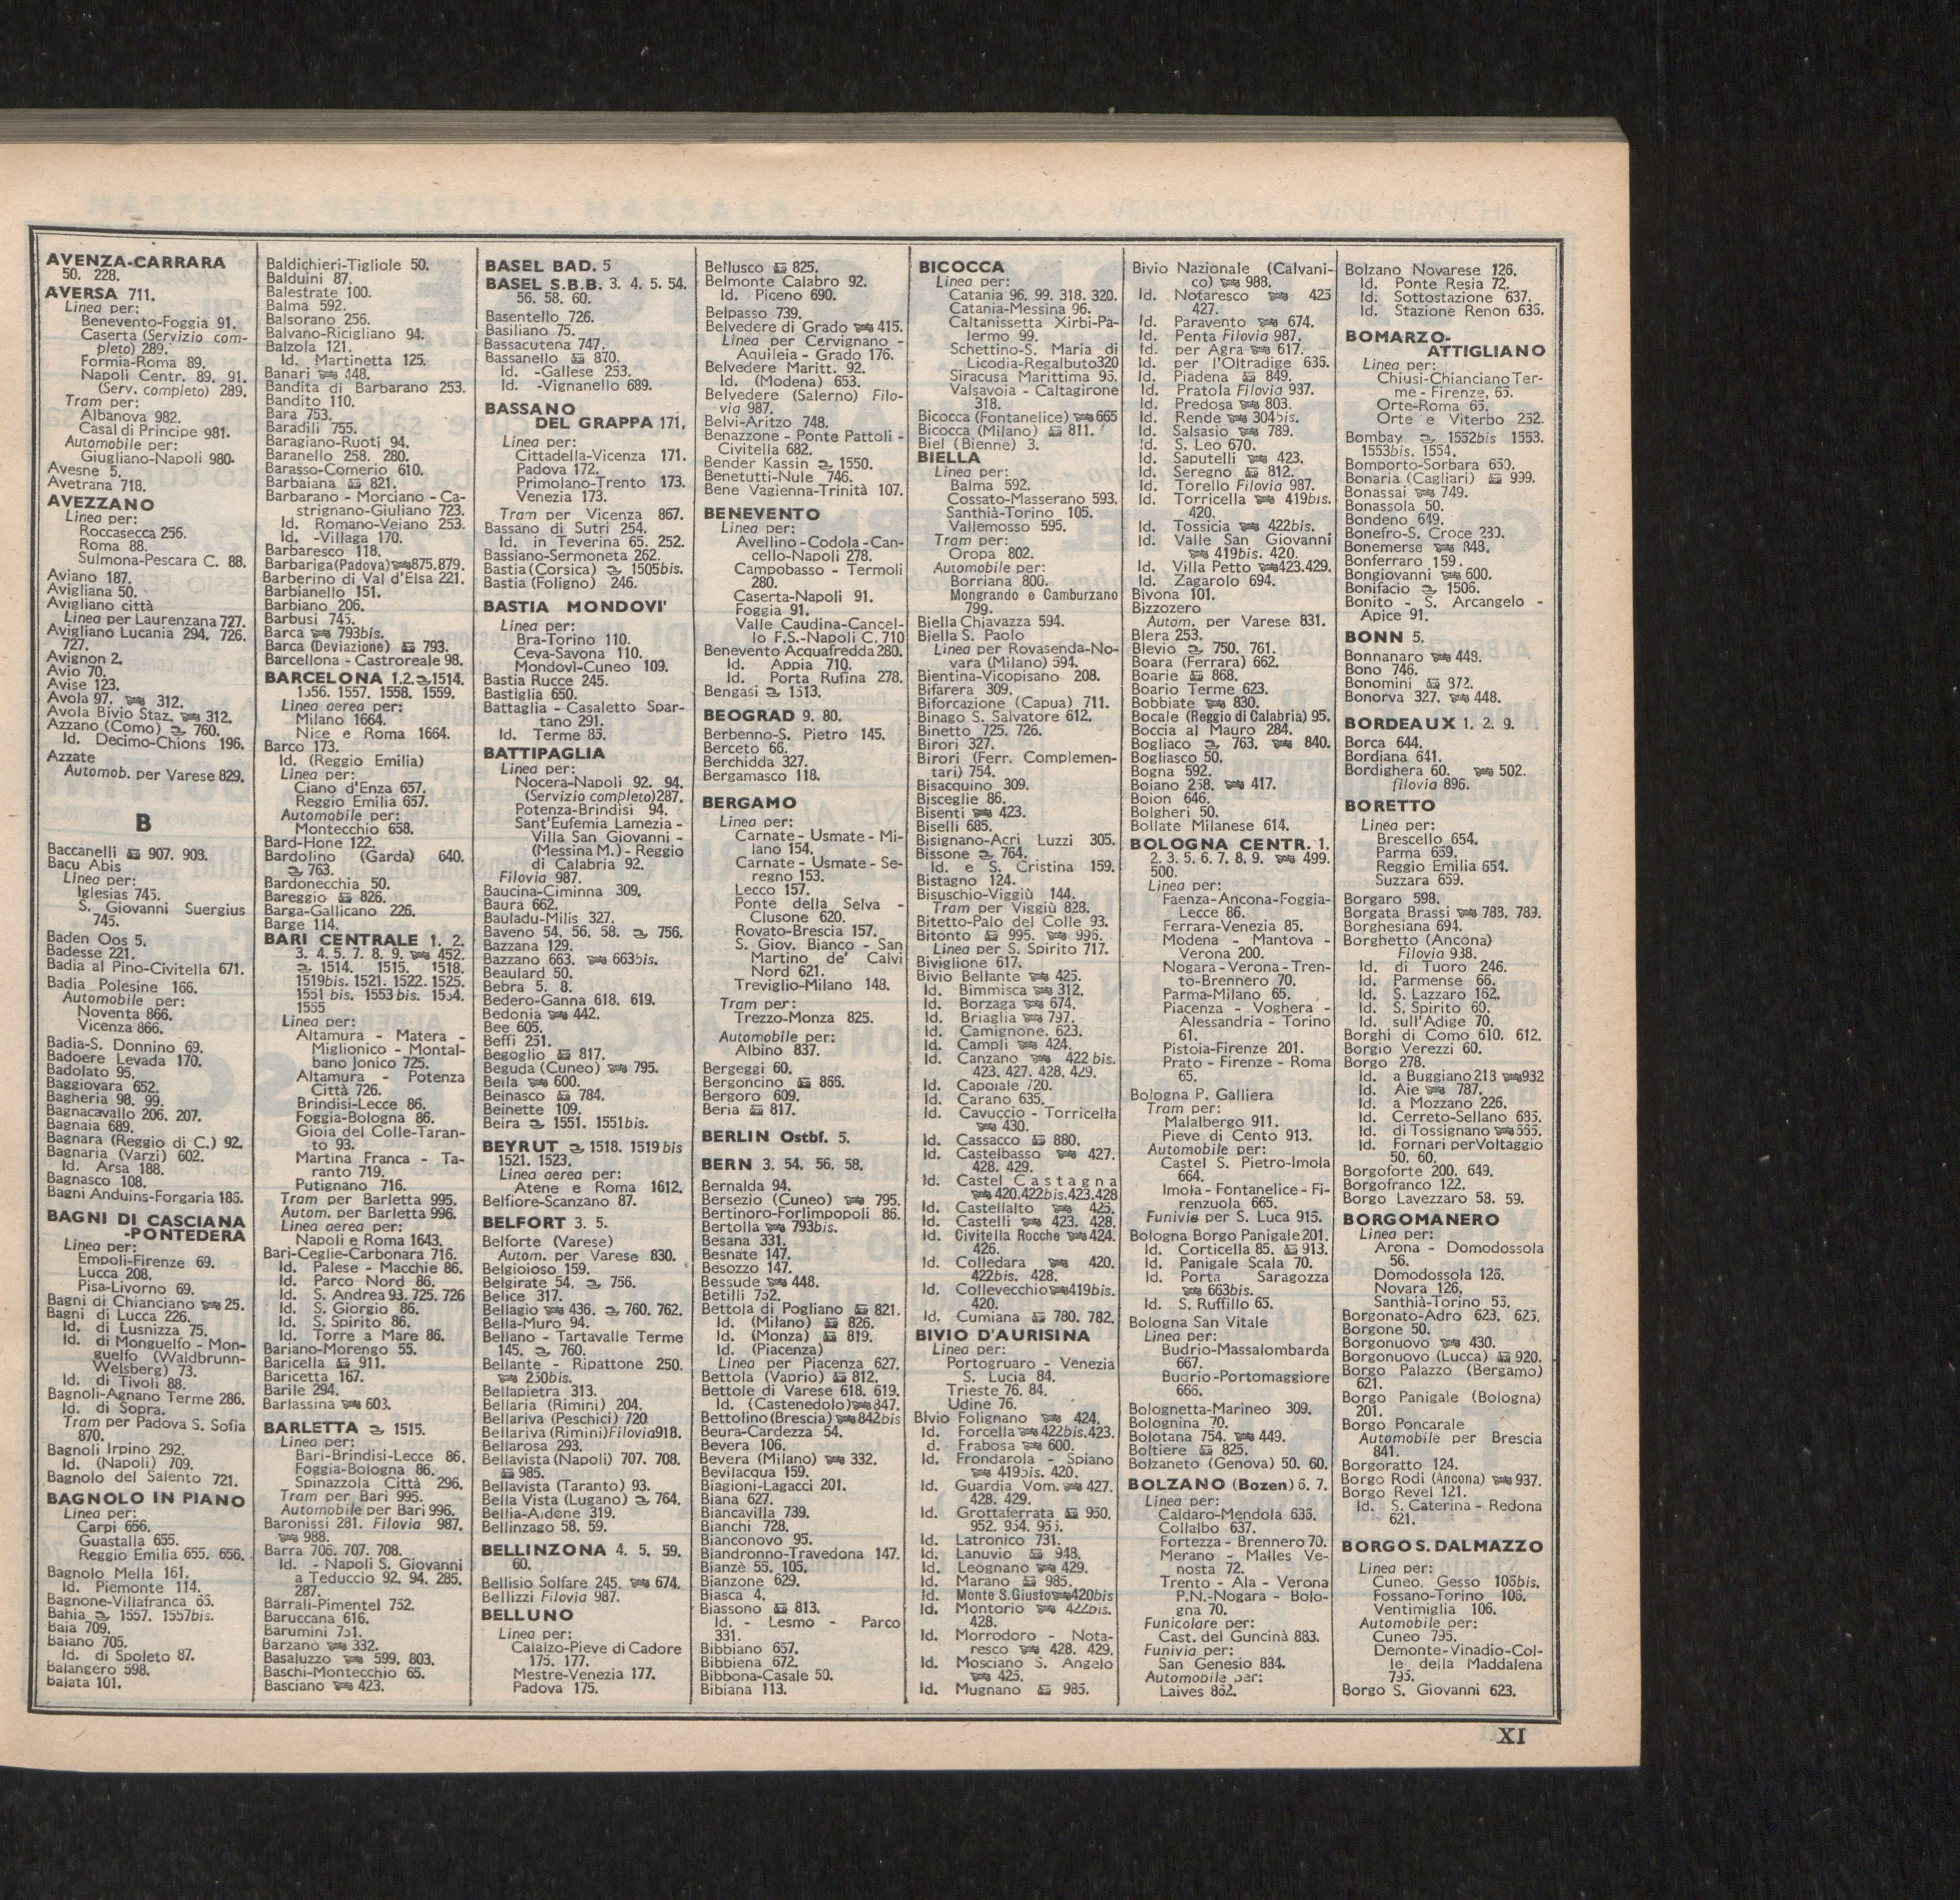 AVENZA-CARRARA
50. 228.
AVERSA 711.
Linea per:
Benevento-Foggia 91.
Caserta (Servizio com-
pleto) 289.
Formia-Roma 89.
Napoli Centr. 89. 91.
(Serv. completo) 289.
Tram per:
Albanova 982.
Casal di Principe 981.
Automobile per:
Giugliano-Napoli 980.
Avesne 5.
Avetrana 718.
AVEZZANO
Linea per:
Roccasecca 256.
Roma 88.
Sulmona-Pescara C. 88.
Aviano 187.
Avigliana 50.
Avigliano città
Linea per Laurenzana 727.
Avigliano Lucania 294. 726.
727.
Avignon 2.
Avio 70.
Avise 123.
Avola 97. 312.
Avola Bivio Staz. 312.
Azzano (Como) 760.
Id. Decimo-Chions 196.
Azzate
Automob. per Varese 829.
B
Baccanelli 907. 908.
Bacu Abis
Linea per:
Iglesias 745.
S. Giovanni Suergius
745.
Baden Oos 5.
Badesse 221.
Badia al Pino-Civitella 671.
Badia Polesine 166.
Automobile per:
Noventa 866.
Vicenza 866.
Badia-S. Donnino 69.
Badoere Levada 170.
Badolato 95.
Baggiovara 652.
Bagheria 98. 99.
Bagnacavallo 206. 207.
Bagnaia 689.
Bagnara (Reggio di C.) 92.
Bagnaria (Varzi) 602.
Id. Arsa 188.
Bagnasco 108.
Bagni Anduins-Forgaria 186.
BAGNI DI CASCIANA
-PONTEDERA
Linea per:
Empoli-Firenze 69.
Lucca 208.
Pisa-Livorno 69.
Bagni di Chianciano 25.
Bagni di Lucca 226.
Id. di Lusnizza 75.
Id. di Monguelfo - Mon-
guelfo (Waldbrunn-
Welsberg) 73.
Id. di Tivoli 88.
Bagnoli-Agnano Terme 286.
Id. di Sopra.
Tram per Padova S. Sofia
870.
Bagnoli Irpino 292.
Id. (Napoli) 709.
Bagnolo del Salento 721.
BAGNOLO IN PIANO
Linea per:
Carpi 656.
Guastalla 655.
Reggio Emilia 655. 656.
Bagnolo Mella 161.
Id. Piemonte 114.
Bagnone-Villafranca 65.
Bahia 1557. 1557bis.
Baia 709.
Baiano 705.
Id. di Spoleto 87.
Balangero 598.
Balata 101.
Baldichieri-Tigliole 50.
Balduini 87.
Balestrate 100.
Balma 592.
Balsorano 256.
Balvano-Ricigliano 94.
Balzola 121.
Id. Martinetta 125.
Banari 448.
Bandita di Barbarano 253.
Bandito 110.
Bara 753.
Baradili 755.
Baragiano-Ruoti 94.
Baranello 258. 280.
Barasso-Comerio 610.
Barbaiana 821.
Barbarano - Morciano - Ca-
strignano-Giuliano 723.
Id. Romano-Veiano 253.
Id. -Villaga 170.
Barbaresco 118.
Barbariga(Padova) 875.879.
Barberino di Val d'Elsa 221.
Barbianello 151.
Barbiano 206.
Barbusi 745.
Barca 793bis.
Barca (Deviazione) 793.
Barcellona - Castroreale 98.
BARCELONA 1.2. 1514.
1556. 1557. 1558. 1559.
Linea aerea per:
Milano 1664.
Nice e Roma 1664.
Barco 173.
Id. (Reggio Emilia)
Linea per:
Ciano d'Enza 657.
Reggio Emilia 657.
Automobile per:
Montecchio 658.
Bard-Hone 122.
Bardolino (Garda) 640.
763.
Bardonecchia 50.
Bareggio 826.
Barga-Gallicano 226.
Barge 114.
BARI CENTRALE 1. 2.
3. 4. 5. 7. 8. 9. 452.
1514. 1515. 1518.
1519bis. 1521. 1522. 1525.
1551 bis. 1553 bis. 1554.
1555
Linea per:
Altamura - Matera -
Miglionico - Montal-
bano Jonico 725.
Altamura - Potenza
Città 726.
Brindisi-Lecce 86.
Foggia-Bologna 86.
Gioia del Colle-Taran-
to 93.
Martina Franca - Ta-
ranto 719.
Putignano 716.
Tram per Barletta 995.
Autom. per Barletta 996.
Linea aerea per:
Napoli e Roma 1643.
Bari-Ceglie-Carbonara 716.
Id. Palese - Macchie 86.
Id. Parco Nord 86.
Id. S. Andrea 93. 725. 726
Id. S. Giorgio 86.
Id. S. Spirito 86.
Id. Torre a Mare 86.
Bariano-Morengo 55.
Baricella 911.
Baricetta 167.
Barile 294.
Barlassina 603.
BARLETTA 1515.
Linea per:
Bari-Brindisi-Lecce 86.
Foggia-Bologna 86.
Spinazzola Città 296.
Tram per Bari 995.
Automobile per Bari 996.
Baronissi 281. Filovia 987.
988.
Barra 706. 707. 708.
Id. - Napoli S. Giovanni
a Teduccio 92. 94. 285.
287.
Barrali-Pimentel 752.
Baruccana 616.
Barumini 751.
Barzano 332.
Basaluzzo 599. 803.
Baschi-Montecchio 65.
Basciano 423.
BASEL BAD. 5
BASEL S.B.B. 3. 4. 5. 54.
56. 58. 60.
Basentello 726.
Basiliano 75.
Bassacutena 747.
Bassanello 870.
Id. -Gallese 253.
Id. -Vignanello 689.
BASSANO
DEL GRAPPA 171.
Linea per:
Cittadella-Vicenza 171.
Padova 172.
Primolano-Trento 173.
Venezia 173.
Tram per Vicenza 867.
Bassano di Sutri 254.
Id. in Teverina 65. 252.
Bassiano-Sermoneta 262.
Bastia (Corsica) 1505bis.
Bastia (Foligno) 246.
BASTIA MONDOVI'
Linea per:
Bra-Torino 110.
Ceva-Savona 110.
Mondovì-Cuneo 109.
Bastia Rucce 245.
Bastiglia 650.
Battaglia - Casaletto Spar-
tano 291.
Id. Terme 85.
BATTIPAGLIA
Linea per:
Nocera-Napoli 92. 94.
(Servizio completo)287.
Potenza-Brindisi 94.
Sant'Eufemia Lamezia -
Villa San Giovanni -
(Messina M.) - Reggio
di Calabria 92.
Filovia 987.
Baucina-Ciminna 309.
Baura 662.
Bauladu-Milis 327.
Baveno 54. 56. 58. 756.
Bazzana 129.
Bazzano 663. 663bis.
Beaulard 50.
Bebra 5. 8.
Bedero-Ganna 618. 619.
Bedonia 442.
Bee 605.
Beffi 251.
Begoglio 817.
Beguda (Cuneo) 795.
Beila 600.
Beinasco 784.
Beinette 109.
Beira 1551. 1551bis.
BEYRUT 1518. 1519 bis
1521. 1523.
Linea aerea per:
Atene e Roma 1612.
Belfiore-Scanzano 87.
BELFORT 3. 5.
Belforte (Varese)
Autom. per Varese 830.
Belgioioso 159.
Belgirate 54. 756.
Belice 317.
Bellagio 436. 760. 762.
Bella-Muro 94.
Bellano - Tartavalle Terme
145. 760.
Bellante - Ripattone 250.
250bis.
Bellapietra 313.
Bellaria (Rimini) 204.
Bellariva (Peschici) 720
Bellariva (Rimini)Filovia918.
Bellarosa 293.
Bellavista (Napoli) 707. 708.
985.
Bellavista (Taranto) 93.
Bella Vista (Lugano) 764.
Bellia-Aidone 319.
Bellinzago 58. 59.
BELLINZONA 4. 5. 59.
60.
Bellisio Solfare 245. 674.
Bellizzi Filovia 987.
BELLUNO
Linea per:
Calalzo-Pieve di Cadore
175. 177.
Mestre-Venezia 177.
Padova 175.
Bellusco 825.
Belmonte Calabro 92.
Id. Piceno 690.
Belpasso 739.
Belvedere di Grado 415.
Linea per Cervignano -
Aquileia - Grado 176.
Belvedere Maritt. 92.
Id. (Modena) 653.
Belvedere (Salerno) Filo-
via 987.
Belvi-Aritzo 748.
Benazzone - Ponte Pattoli -
Civitella 682.
Bender Kassin 1550.
Benetutti-Nule 746.
Bene Vagienna-Trinità 107.
BENEVENTO
Linea per:
Avellino - Codola - Can-
cello-Napoli 278.
Campobasso - Termoli
280.
Caserta-Napoli 91.
Foggia 91.
Valle Caudina-Cancel-
lo F.S.-Napoli C. 710
Benevento Acquafredda 280.
Id. Appia 710.
Id. Porta Rufina 278.
Bengasi 1513.
BEOGRAD 9. 80.
Berbenno-S. Pietro 145.
Berceto 66.
Berchidda 327.
Bergamasco 118.
BERGAMO
Linea per:
Carnate - Usmate - Mi-
lano 154.
Carnate - Usmate - Se-
regno 153.
Lecco 157.
Ponte della Selva -
Clusone 620.
Rovato-Brescia 157.
S. Giov. Bianco - San
Martino de' Calvi
Nord 621.
Treviglio-Milano 148.
Tram per:
Trezzo-Monza 825.
Automobile per:
Albino 837.
Bergeggi 60.
Bergoncino 866.
Bergoro 609.
Beria 817.
BERLIN Ostbf. 5.
BERN 3. 54. 56. 58.
Bernalda 94.
Bersezio (Cuneo) 795.
Bertinoro-Forlimpopoli 86.
Bertolla 793bis.
Besana 331.
Besnate 147.
Besozzo 147.
Bessude 448.
Betilli 752.
Bettola di Pogliano 821.
Id. (Milano) 826.
Id. (Monza) 819.
Id. (Piacenza)
Linea per Piacenza 627.
Bettola (Vaprio) 812.
Bettole di Varese 618. 619.
Id. (Castenedolo) 847.
Bettolino (Brescia) 842bis
Beura-Cardezza 54.
Bevera 106.
Bevera (Milano) 332.
Bevilacqua 159.
Biagioni-Lagacci 201.
Biana 627.
Biancavilla 739.
Bianchi 728.
Bianconovo 95.
Biandronno-Travedona 147.
Bianzè 55. 105.
Bianzone 629.
Biasca 4.
Biassono 813.
Id. - Lesmo - Parco
331.
Bibbiano 657.
Bibbiena 672.
Bibbona-Casale 50.
Bibiana 113.
BICOCCA
Linea per:
Catania 96. 99. 318. 320.
Catania-Messina 96.
Caltanissetta Xirbi-Pa-
lermo 99.
Schettino-S. Maria di
Licodia-Regalbuto320
Siracusa Marittima 96.
Valsavoia - Caltagirone
318.
Bicocca (Fontanelice) 665
Bicocca (Milano) 811.
Biel (Bienne) 3.
BIELLA
Linea per:
Balma 592.
Cossato-Masserano 593.
Santhià-Torino 105.
Vallemosso 595.
Tram per:
Oropa 802.
Automobile per:
Borriana 800.
Mongrando e Camburzano
799.
Biella Chiavazza 594.
Biella S. Paolo
Linea per Rovasenda-No-
vara (Milano) 594.
Bientina-Vicopisano 208.
Bifarera 309.
Biforcazione (Capua) 711.
Binago S. Salvatore 612.
Binetto 725. 726.
Birori 327.
Birori (Ferr. Complemen-
tari) 754.
Bisacquino 309.
Bisceglie 86.
Bisenti 423.
Biselli 685.
Bisignano-Acri Luzzi 305.
Bissone 764.
Id. e S. Cristina 159.
Bistagno 124.
Bisuschio-Viggiù 144.
Tram per Viggiù 828.
Bitetto-Palo del Colle 93.
Bitonto 995. 996.
Linea per S. Spirito 717.
Biviglione 617.
Bivio Bellante 425.
Id. Bimmisca 312.
Id. Borzaga 674.
Id. Briaglia 797.
Id. Camignone. 623.
Id. Campli 424.
Id. Canzano 422 bis.
423. 427. 428. 429.
Id. Capoiale 720.
Id. Carano 635.
Id. Cavuccio - Torricella
430.
Id. Cassacco 880.
Id. Castelbasso 427.
428. 429.
Id. Castel Castagna
420.422bis.423.428
Id. Castellalto 425.
Id. Castelli 423. 428.
Id. Civitella Rocche 424.
426.
Id. Colledara 420.
422bis. 428.
Id. Collevecchio 419bis.
420.
Id. Cumiana 780. 782.
BIVIO D'AURISINA
Linea per:
Portogruaro - Venezia
S. Lucia 84.
Trieste 76. 84.
Udine 76.
Bivio Folignano 424.
Id. Forcella 422bis.423.
d. Frabosa 600.
Id. Frondarola - Spiano
419bis. 420.
Id. Guardia Vom. 427.
428. 429.
Id. Grottaferrata 950.
952. 954. 955.
Id. Latronico 731.
Id. Lanuvio 948.
Id. Leognano 429.
Id. Marano 985.
Id. Monte S. Giusto 420bis
Id. Montorio 422bis.
428.
Id. Morrodoro - Nota-
resco 428. 429.
Id. Mosciano S. Angelo
425.
Id. Mugnano 985.
Bivio Nazionale (Calvani-
co) 988.
Id. Notaresco 425
427.
Id. Paravento 674.
Id. Penta Filovia 987.
Id. per Agra 617.
Id. per l'Oltradige 635.
Id. Piadena 849.
Id. Pratola Filovia 987.
Id. Predosa 803.
Id. Rende 304bis.
Id. Salsasio 789.
Id. S. Leo 670.
Id. Saputelli 423.
Id. Seregno 812.
Id. Torello Filovia 987.
Id. Torricella 419bis.
420.
Id. Tossicia 422bis.
Id. Valle San Giovanni
419bis. 420.
Id. Villa Petto 423.429.
Id. Zagarolo 694.
Bivona 101.
Bizzozero
Autom. per Varese 831.
Blera 253.
Blevio 750. 761.
Boara (Ferrara) 662.
Boarie 868.
Boario Terme 623.
Bobbiate 830.
Bocale (Reggio di Calabria) 95.
Boccia al Mauro 284.
Bogliaco 763. 840.
Bogliasco 50.
Bogna 592.
Boiano 258. 417.
Boion 646.
Bolgheri 50.
Bollate Milanese 614.
BOLOGNA CENTR. 1.
2. 3. 5. 6. 7. 8. 9. 499.
500.
Linea per:
Faenza-Ancona-Foggia-
Lecce 86.
Ferrara-Venezia 85.
Modena - Mantova -
Verona 200.
Nogara - Verona - Tren-
to-Brennero 70.
Parma-Milano 65.
Piacenza - Voghera -
Alessandria - Torino
61.
Pistoia-Firenze 201.
Prato - Firenze - Roma
65.
Bologna P. Galliera
Tram per:
Malalbergo 911.
Pieve di Cento 913.
Automobile per:
Castel S. Pietro-Imola
664.
Imola - Fontanelice - Fi-
renzuola 665.
Funivie per S. Luca 915.
Bologna Borgo Panigale 201.
Id. Corticella 85. 913.
Id. Panigale Scala 70.
Id. Porta Saragozza
663bis.
Id. S. Ruffillo 65.
Bologna San Vitale
Linea per:
Budrio-Massalombarda
667.
Budrio-Portomaggiore
666.
Bolognetta-Marineo 309.
Bolognina 70.
Bolotana 754. 449.
Boltiere 825.
Bolzaneto (Genova) 50. 60.
BOLZANO (Bozen) 6. 7.
Linea per:
Caldaro-Mendola 635.
Collalbo 637.
Fortezza - Brennero 70.
Merano - Malles Ve-
nosta 72.
Trento - Ala - Verona
P.N.-Nogara - Bolo-
gna 70.
Funicolare per:
Cast. del Guncinà 883.
Funivia per:
San Genesio 884.
Automobile per:
Laives 882.
Bolzano Novarese 126.
Id. Ponte Resia 72.
Id. Sottostazione 637.
Id. Stazione Renon 635.
BOMARZO-
ATTIGLIANO
Linea per:
Chiusi-Chianciano Ter-
me - Firenze, 65.
Orte-Roma 65.
Orte e Viterbo 252.
Bombay 1552bis 1553.
1553bis. 1554.
Bomporto-Sorbara 650.
Bonaria (Cagliari) 999.
Bonassai 749.
Bonassola 50.
Bondeno 649.
Bonefro-S. Croce 280.
Bonemerse 848.
Bonferraro 159.
Bongiovanni 600.
Bonifacio 1506.
Bonito - S. Arcangelo -
Apice 91.
BONN 5.
Bonnanaro 448.
Bono 746.
Bonomini 872.
Bonorva 327. 448.
BORDEAUX 1. 2. 9.
Borca 644.
Bordiana 641.
Bordighera 60. 502.
filovia 896.
BORETTO
Linea per:
Brescello 654.
Parma 659.
Reggio Emilia 654.
Suzzara 659.
Borgaro 598.
Borgata Brassi 788. 789.
Borghesiana 694.
Borghetto (Ancona)
Filovia 938.
Id. di Tuoro 246.
Id. Parmense 66.
Id. S. Lazzaro 162.
Id. S. Spirito 60.
Id. sull'Adige 70.
Borghi di Como 610. 612.
Borgio Verezzi 60.
Borgo 278.
Id. a Buggiano 213 932
Id. Aie 787.
Id. a Mozzano 226.
Id. Cerreto-Sellano 685.
Id. di Tossignano 665.
Id. Fornari per Voltaggio
50. 60.
Borgoforte 200. 649.
Borgofranco 122.
Borgo Lavezzaro 58. 59.
BORGOMANERO
Linea per:
Arona - Domodossola
56.
Domodossola 126.
Novara 126.
Santhià-Torino 55.
Borgonato-Adro 623. 625.
Borgone 50.
Borgonuovo 430.
Borgonuovo (Lucca) 920.
Borgo Palazzo (Bergamo)
621.
Borgo Panigale (Bologna)
201.
Borgo Poncarale
Automobile per Brescia
841.
Borgoratto 124.
Borgo Rodi (Ancona) 937.
Borgo Revel 121.
Id. S. Caterina - Redona
621.
BORGO S. DALMAZZO
Linea per:
Cuneo. Gesso 106bis.
Fossano-Torino 106.
Ventimiglia 106.
Automobile per:
Cuneo 795.
Demonte-Vinadio-Col-
le della Maddalena
795.
Borgo S. Giovanni 623.
XI